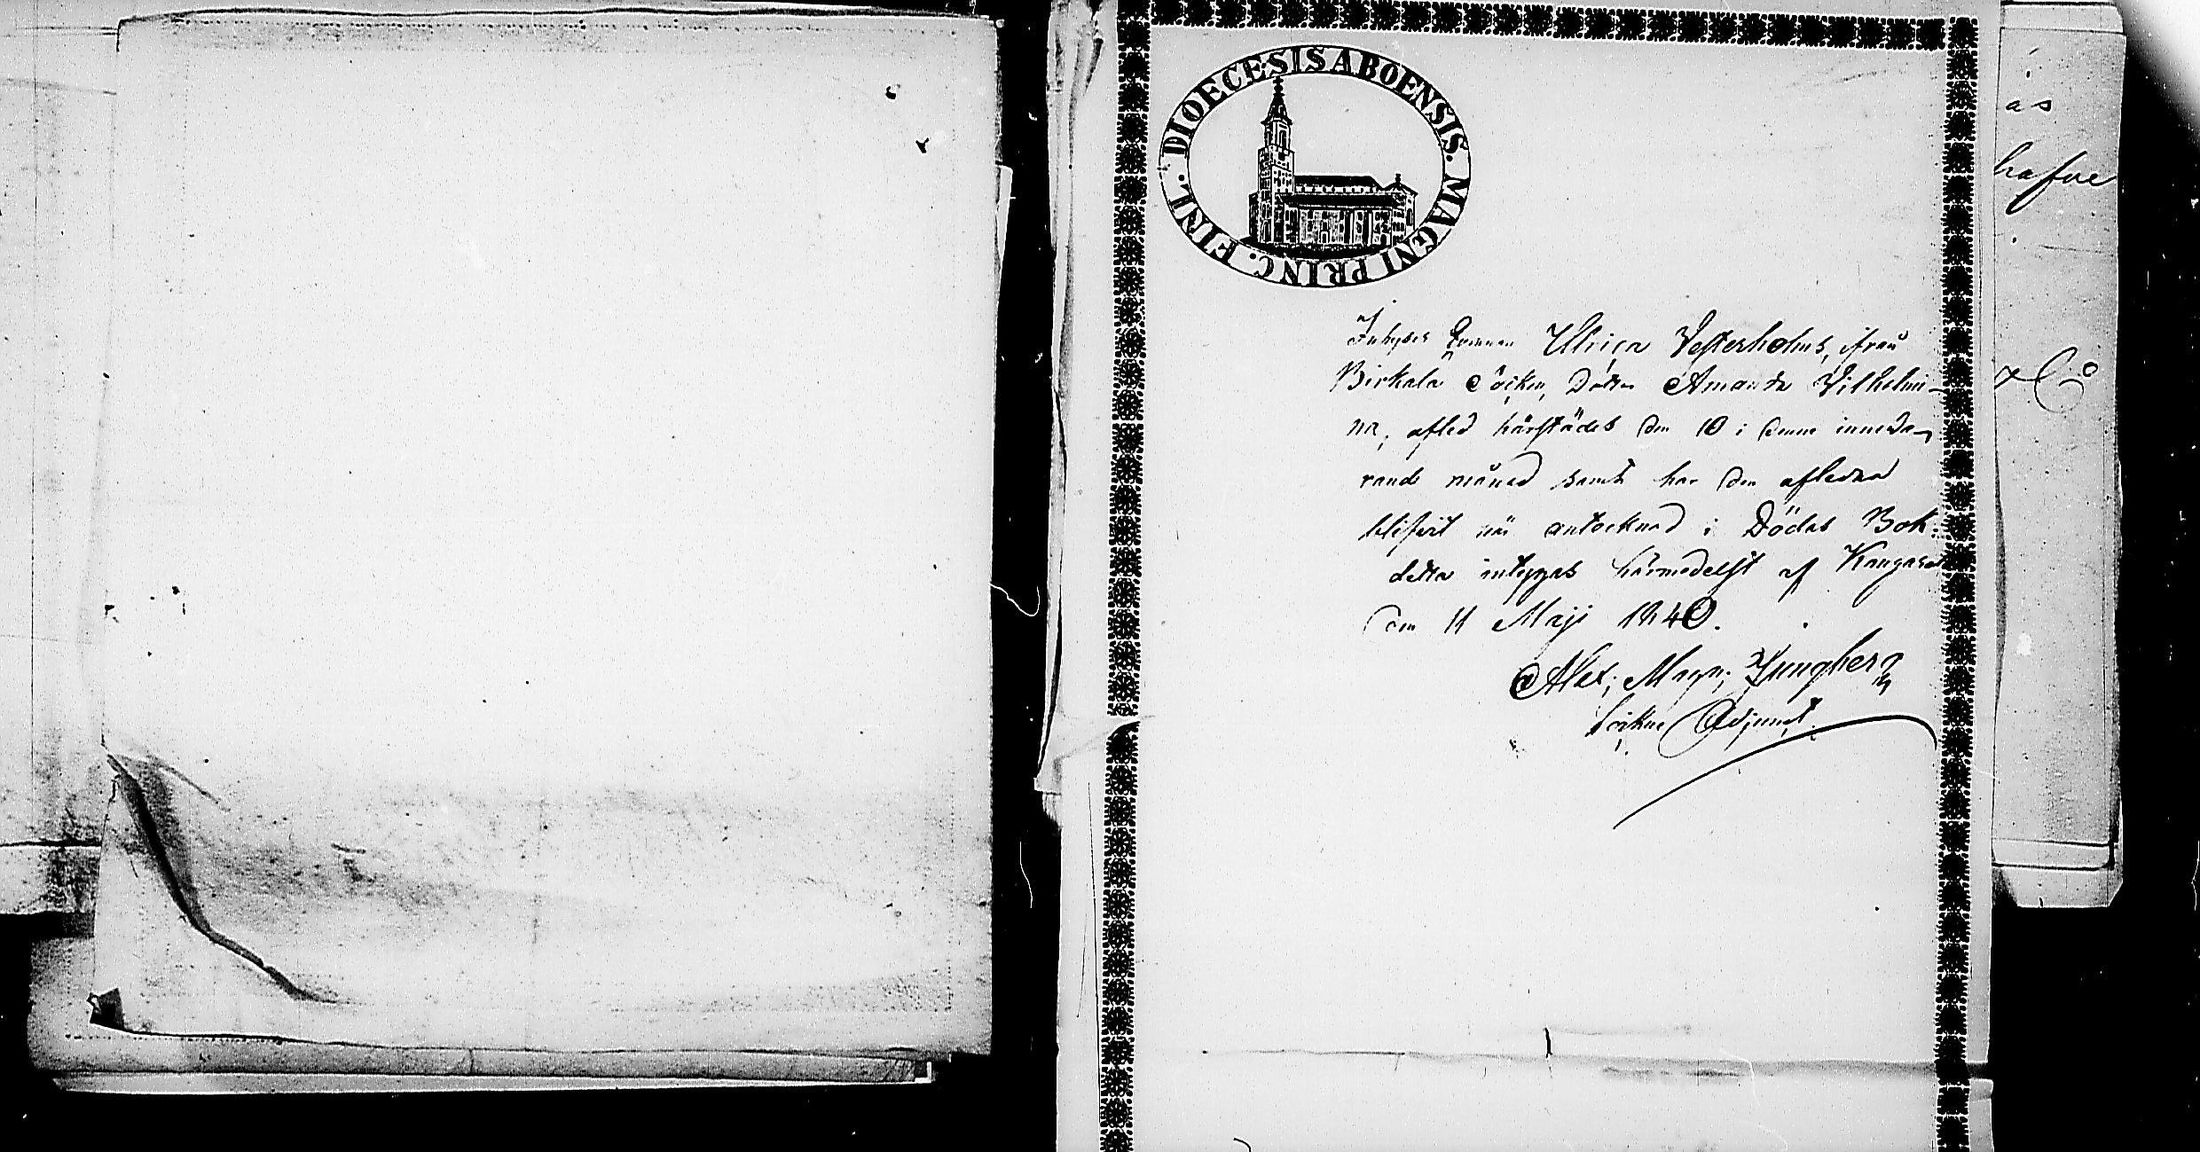 DIOECESIS ABOENSIS. MAGNI PRINC. FINL.
Inhyses Qwinnan Ulrica Vesterholms, ifrån
Birkala Socken, Dotter Amanda Vilhelmi-
na, afled härstädes den 10 i denne inneva-
rande månad samt har den afledna
blifvit här antecknad i Dödas Bok;
detta intygas härmedelst af Kangasala
den 11 Maji 1840.
Alex; Magn; Ljungberg
Sockne Adjunct.
ås
hafve